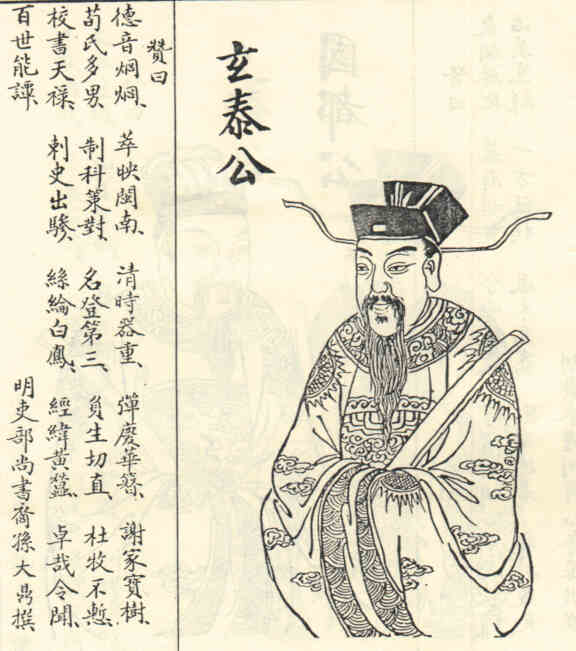 玄泰公
贊曰
德音炯炯、萃映閩南、清時器重、彈慶華簪、謝家寶樹、
荀氏多男、制科策對、名登第三、生切直、杜牧不慙、
校書天祿、刺史出驂、絲綸白鳳、經緯黃蠶、卓哉令聞、
百世能譚、明吏部尚書裔孫大鼎撰